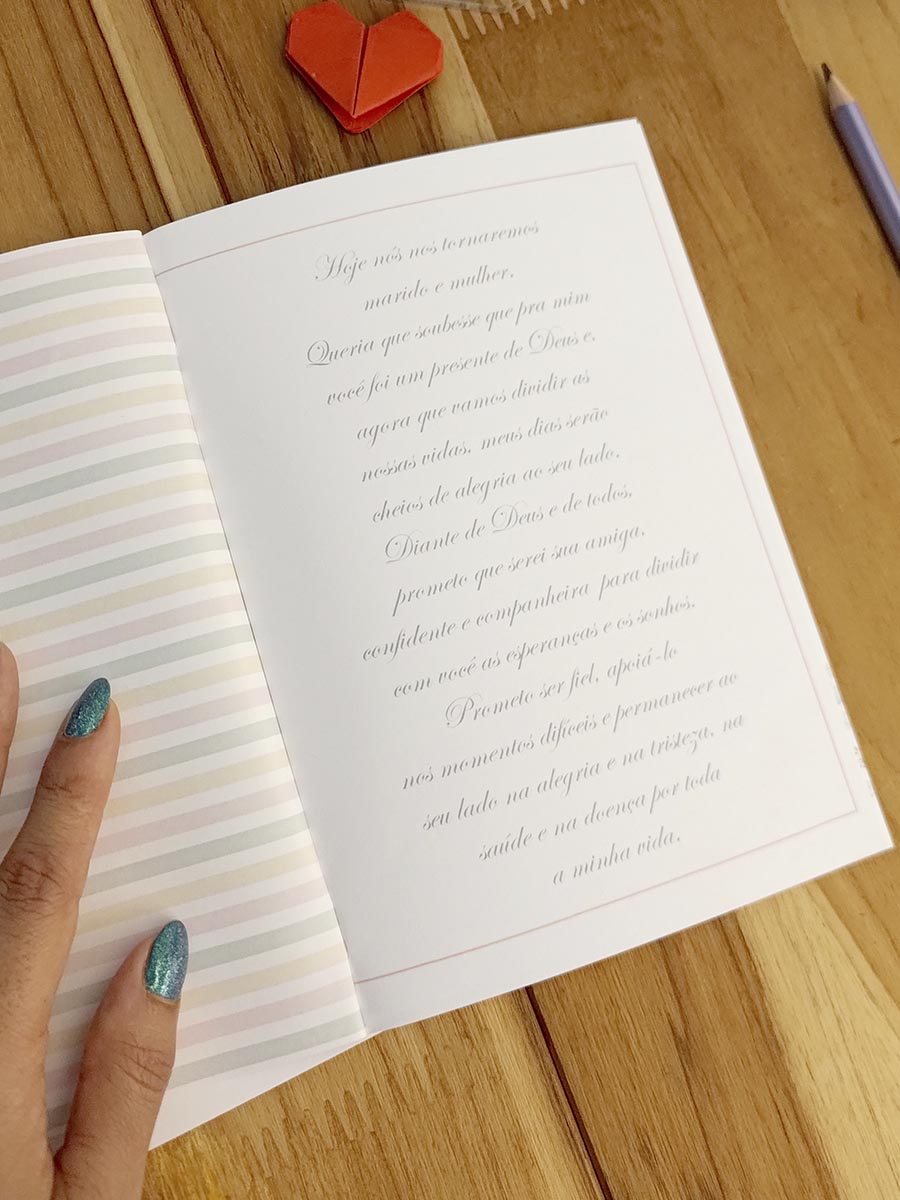 Hoje nós nos tornaremos
marido e mulher.
Queria que soubesse que pra mim
você foi um presente de Deus e,
agora que vamos dividir as
nossas vidas, meus dias serão
cheios de alegria ao seu lado.
Diante de Deus e de todos,
prometo que serei sua amiga,
confidente e companheira para dividir
com você as esperanças e os sonhos.
Prometo ser fiel, apoiá-lo
nos momentos difíceis e permanecer ao
seu lado na alegria e na tristeza, na
saúde e na doença por toda
a minha vida.